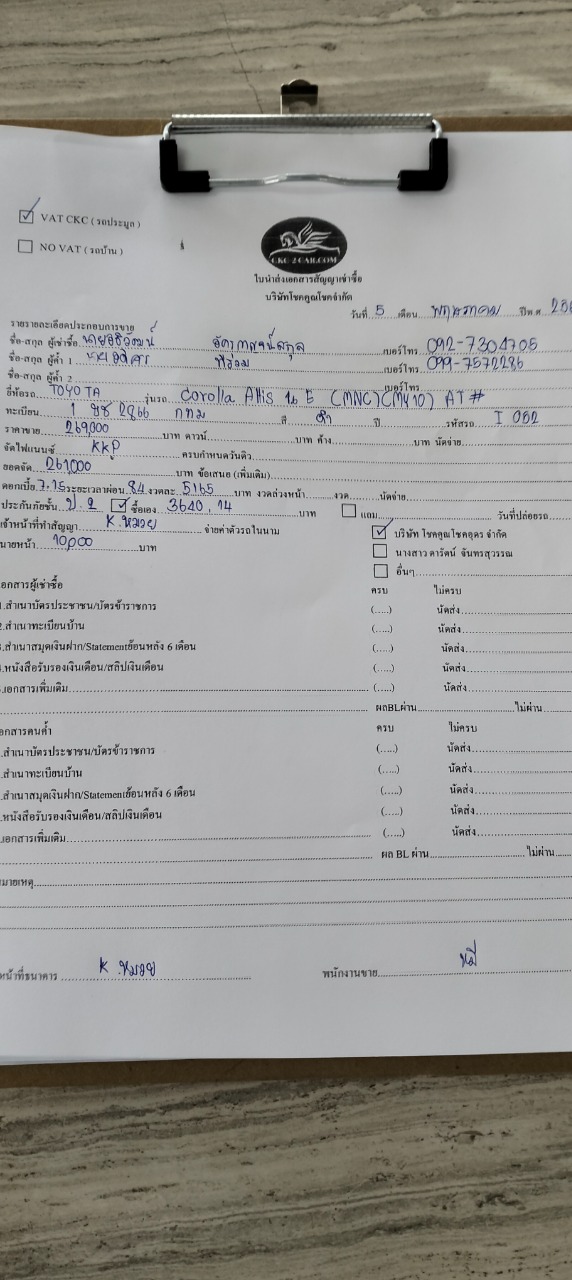 VAT CKC ( รถประมูล )
NO VAT (รถบ้าน)
CKC-2 CAR.COM
ใบนำส่งเอกสารสัญญาเช่าซื้อ
บริษัทโชคคูณโชคจำกัด
วันที่ 5 เดือน พฤษภาคม ปีพ.ศ. 256
รายรายละเอียดประกอบการขาย
ชื่อ-สกุล ผู้เช่าซื้อ เบอร์โทร 092-7304705
ชื่อ-สกุล ผู้ค้ำ 1 เบอร์โทร 099-7572286
ชื่อ-สกุล ผู้ค้ำ 2 เบอร์โทร
ยี่ห้อรถ TOYOTA รุ่นรถ Corolla Altis 1.6 E (MNC)(MY10) AT#
ทะเบียน 2866 กทม สี ดำ ปี รหัสรถ I 052
ราคาขาย 269,000 บาท ดาวน์ บาท ค้าง บาท นัดจ่าย
จัดไฟแนนซ์ KKP ครบกำหนดวันดิว
ยอดจัด 261,000 บาท ข้อเสนอ (เพิ่มเติม)
ดอกเบี้ย 7.15 ระยะเวลาผ่อน 84 งวดละ 5165 บาท งวดล่วงหน้า งวด นัดจ่าย
ประกันภัยชั้น ป.2 ซื้อเอง 3640.14 บาท แถม วันที่ปล่อยรถ
เจ้าหน้าที่ทำสัญญา K.หมวย จ่ายค่าตัวรถในนาม บริษัท โชคคูณโชคอุดร จำกัด
นายหน้า 10,000 บาท นางสาว ดารัตน์ จันทรสุวรรณ
อื่นๆ
เอกสารผู้เช่าซื้อ ครบ ไม่ครบ
1.สำเนาบัตรประชาชน/บัตรข้าราชการ (.....) นัดส่ง
2.สำเนาทะเบียนบ้าน (.....) นัดส่ง
3.สำเนาสมุดเงินฝาก/Statementย้อนหลัง 6 เดือน (.....) นัดส่ง
4.หนังสือรับรองเงินเดือน/สลิปเงินเดือน (.....) นัดส่ง
.เอกสารเพิ่มเติม (.....) นัดส่ง
ผลBLผ่าน ไม่ผ่าน
เอกสารคนค้ำ ครบ ไม่ครบ
.สำเนาบัตรประชาชน/บัตรข้าราชการ (.....) นัดส่ง
.สำเนาทะเบียนบ้าน (.....) นัดส่ง
.สำเนาสมุดเงินฝาก/Statementย้อนหลัง 6 เดือน (.....) นัดส่ง
.หนังสือรับรองเงินเดือน/สลิปเงินเดือน (.....) นัดส่ง
.เอกสารเพิ่มเติม (.....) นัดส่ง
ผล BL ผ่าน ไม่ผ่าน
หมายเหตุ
หน้าที่ธนาคาร K.หมวย พนักงานขาย หมี